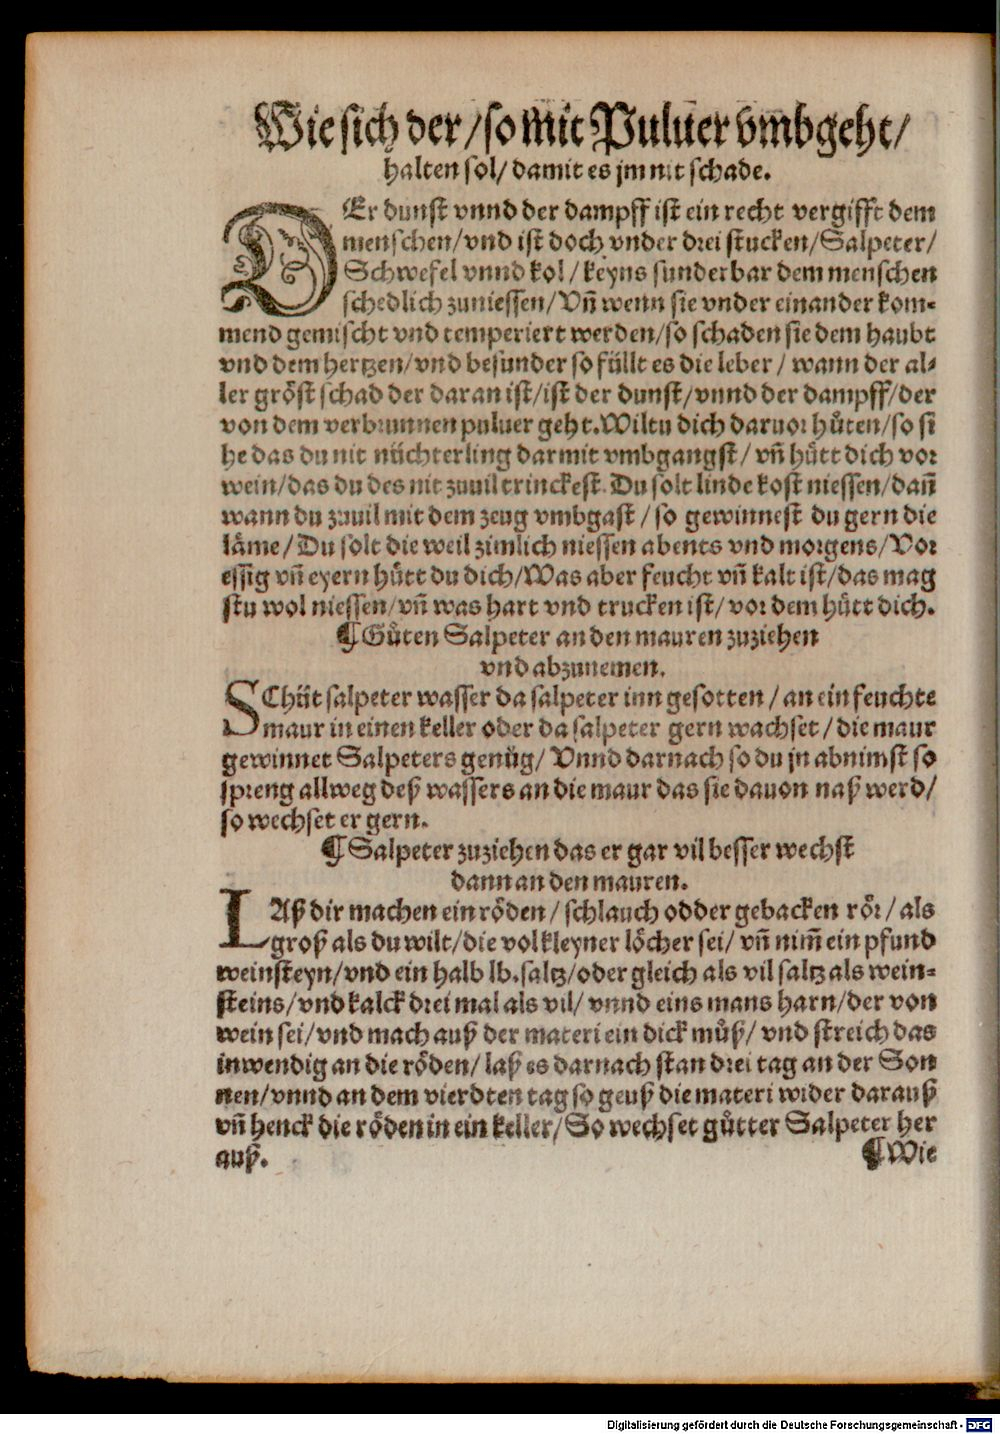 Wie sich der/so mit Puluer vmbgeht/
halten sol/ damit es jm nit schade.
DEr dunst vnnd der dampff ist ein recht vergifft dem
menschen/vnd ist doch vnder drei stucken/Salpeter/
Schwefel vnnd kol/ keyns sunderbar dem menschen
schedlich zuniessen/ Vñ wenn sie vnder einander kom-
mend gemischt vnd temperiert werden/so schaden sie dem haubt
vnd dem hertzen/vnd besunder so füllt es die leber/ wann der al-
ler gröst schad der daran ist/ist der dunst/vnnd der dampff/der
von dem verbrunnen puluer geht. Wiltu dich daruor hůten/so si
he das du nit nüchterling darmit vmbgangst/ vñ hůtt dich vor
wein/das du des nit zuuil trinckest. Du solt linde kost niessen/dañ
wann du zuuil mit dem zeug vmbgast/ so gewinnest du gern die
läme/ Du solt die weil zimlich niessen abents vnd morgens/ Vor
essig vñ eyern hütt du dich/ Was aber feucht vñ kalt ist/das mag
stu wol niessen/vñ was hart vnd trucken ist/ vor dem hütt dich.
¶ Gůten Salpeter an den mauren zuziehen
vnd abzunemen.
SChüt salpeter wasser da salpeter inn gesotten/ an ein feuchte
maur in einen keller oder da salpeter gern wachset/ die maur
gewinnet Salpeters genůg/ Vnnd darnach so du jn abnimst so
spreng allweg deß wassers an die maur das sie dauon naß werd/
so wechset er gern.
¶ Salpeter zuziehen das er gar vil besser wechst
dann an den mauren.
LAß dir machen ein röden/ schlauch odder gebacken rör/ als
groß als du wilt/die vol kleyner löcher sei/ vñ nim̃ ein pfund
weinsteyn/vnd ein halb lb. saltz/oder gleich als vil saltz als wein-
steins/vnd kalck drei mal als vil/ vnnd eins mans harn/der von
wein sei/vnd mach auß der materi ein dick můß/ vnd streich das
inwendig an die röden/ laß es darnach stan drei tag an der Son
nen/vnnd an dem vierdten tag so geuß die materi wider darauß
vñ henck die röden in ein keller/ So wechset gůtter Salpeter her
auß.
¶ Wie
Digitalisierung gefördert durch die Deutsche Forschungsgemeinschaft - DFG